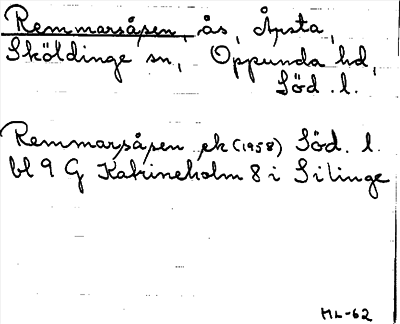 Remmarsåsen, ås, Åpsta,
Sköldinge sn, Oppunda hd,
Söd. l.
Remmarsåsen ek (1958) Söd. l.
bl 9 G Katrineholm 8 i Silinge
ML-62